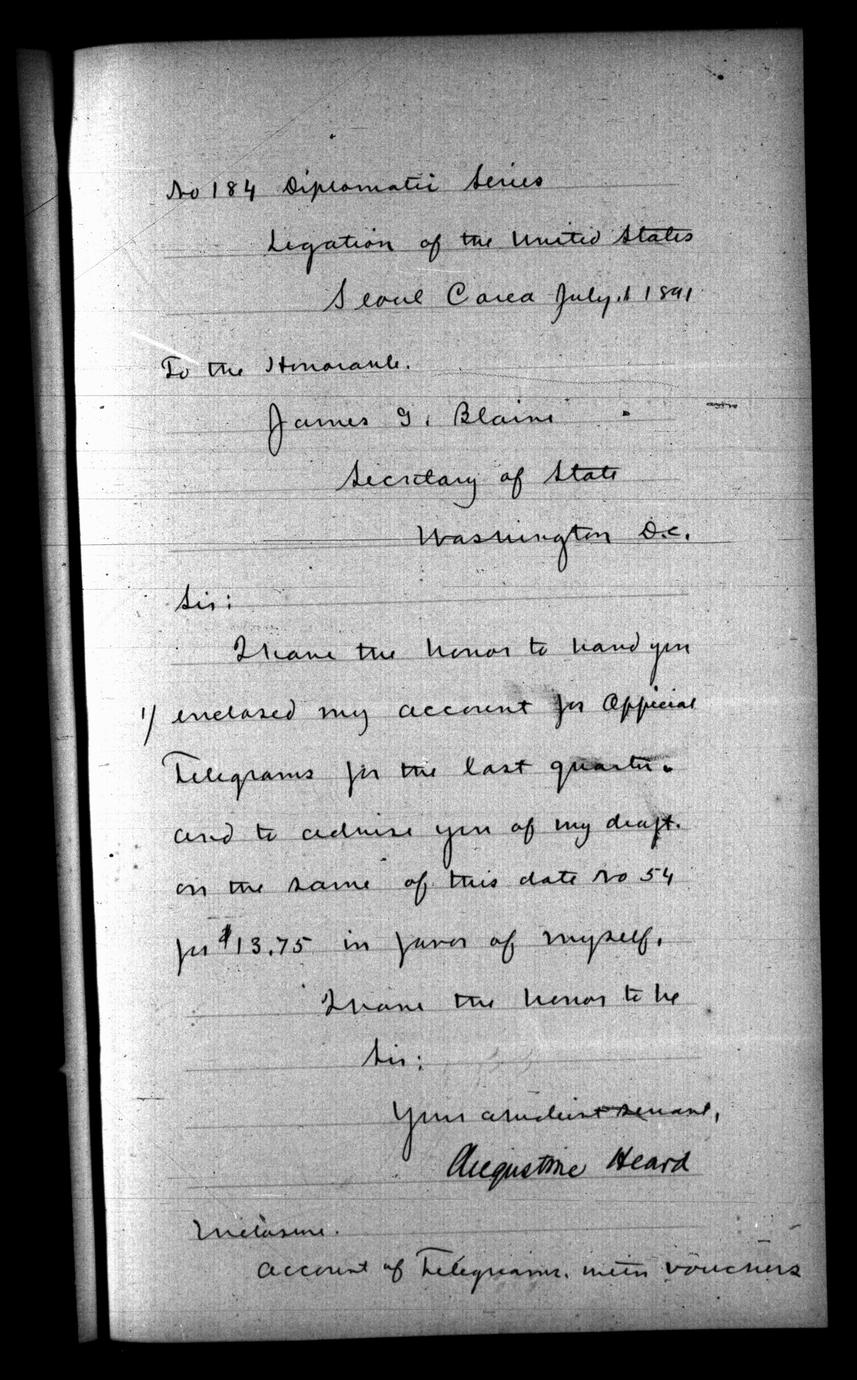 No 184 Diplomatic Series
Legation of the United States
Seoul Corea July 1 1891
To the Honorable.
James G. Blaine
Secretary of State
Washington D.C.
Sir:
I have the honor to hand you
1/ enclosed my account for Official
Telegrams for the last quarter.
and to advise you of my draft.
on the same of this date No 54
for $13.75 in favor of myself.
I have the honor to be
Sir:
Your obedient servant,
Augustine Heard
Enclosure.
Account of Telegrams. with vouchers